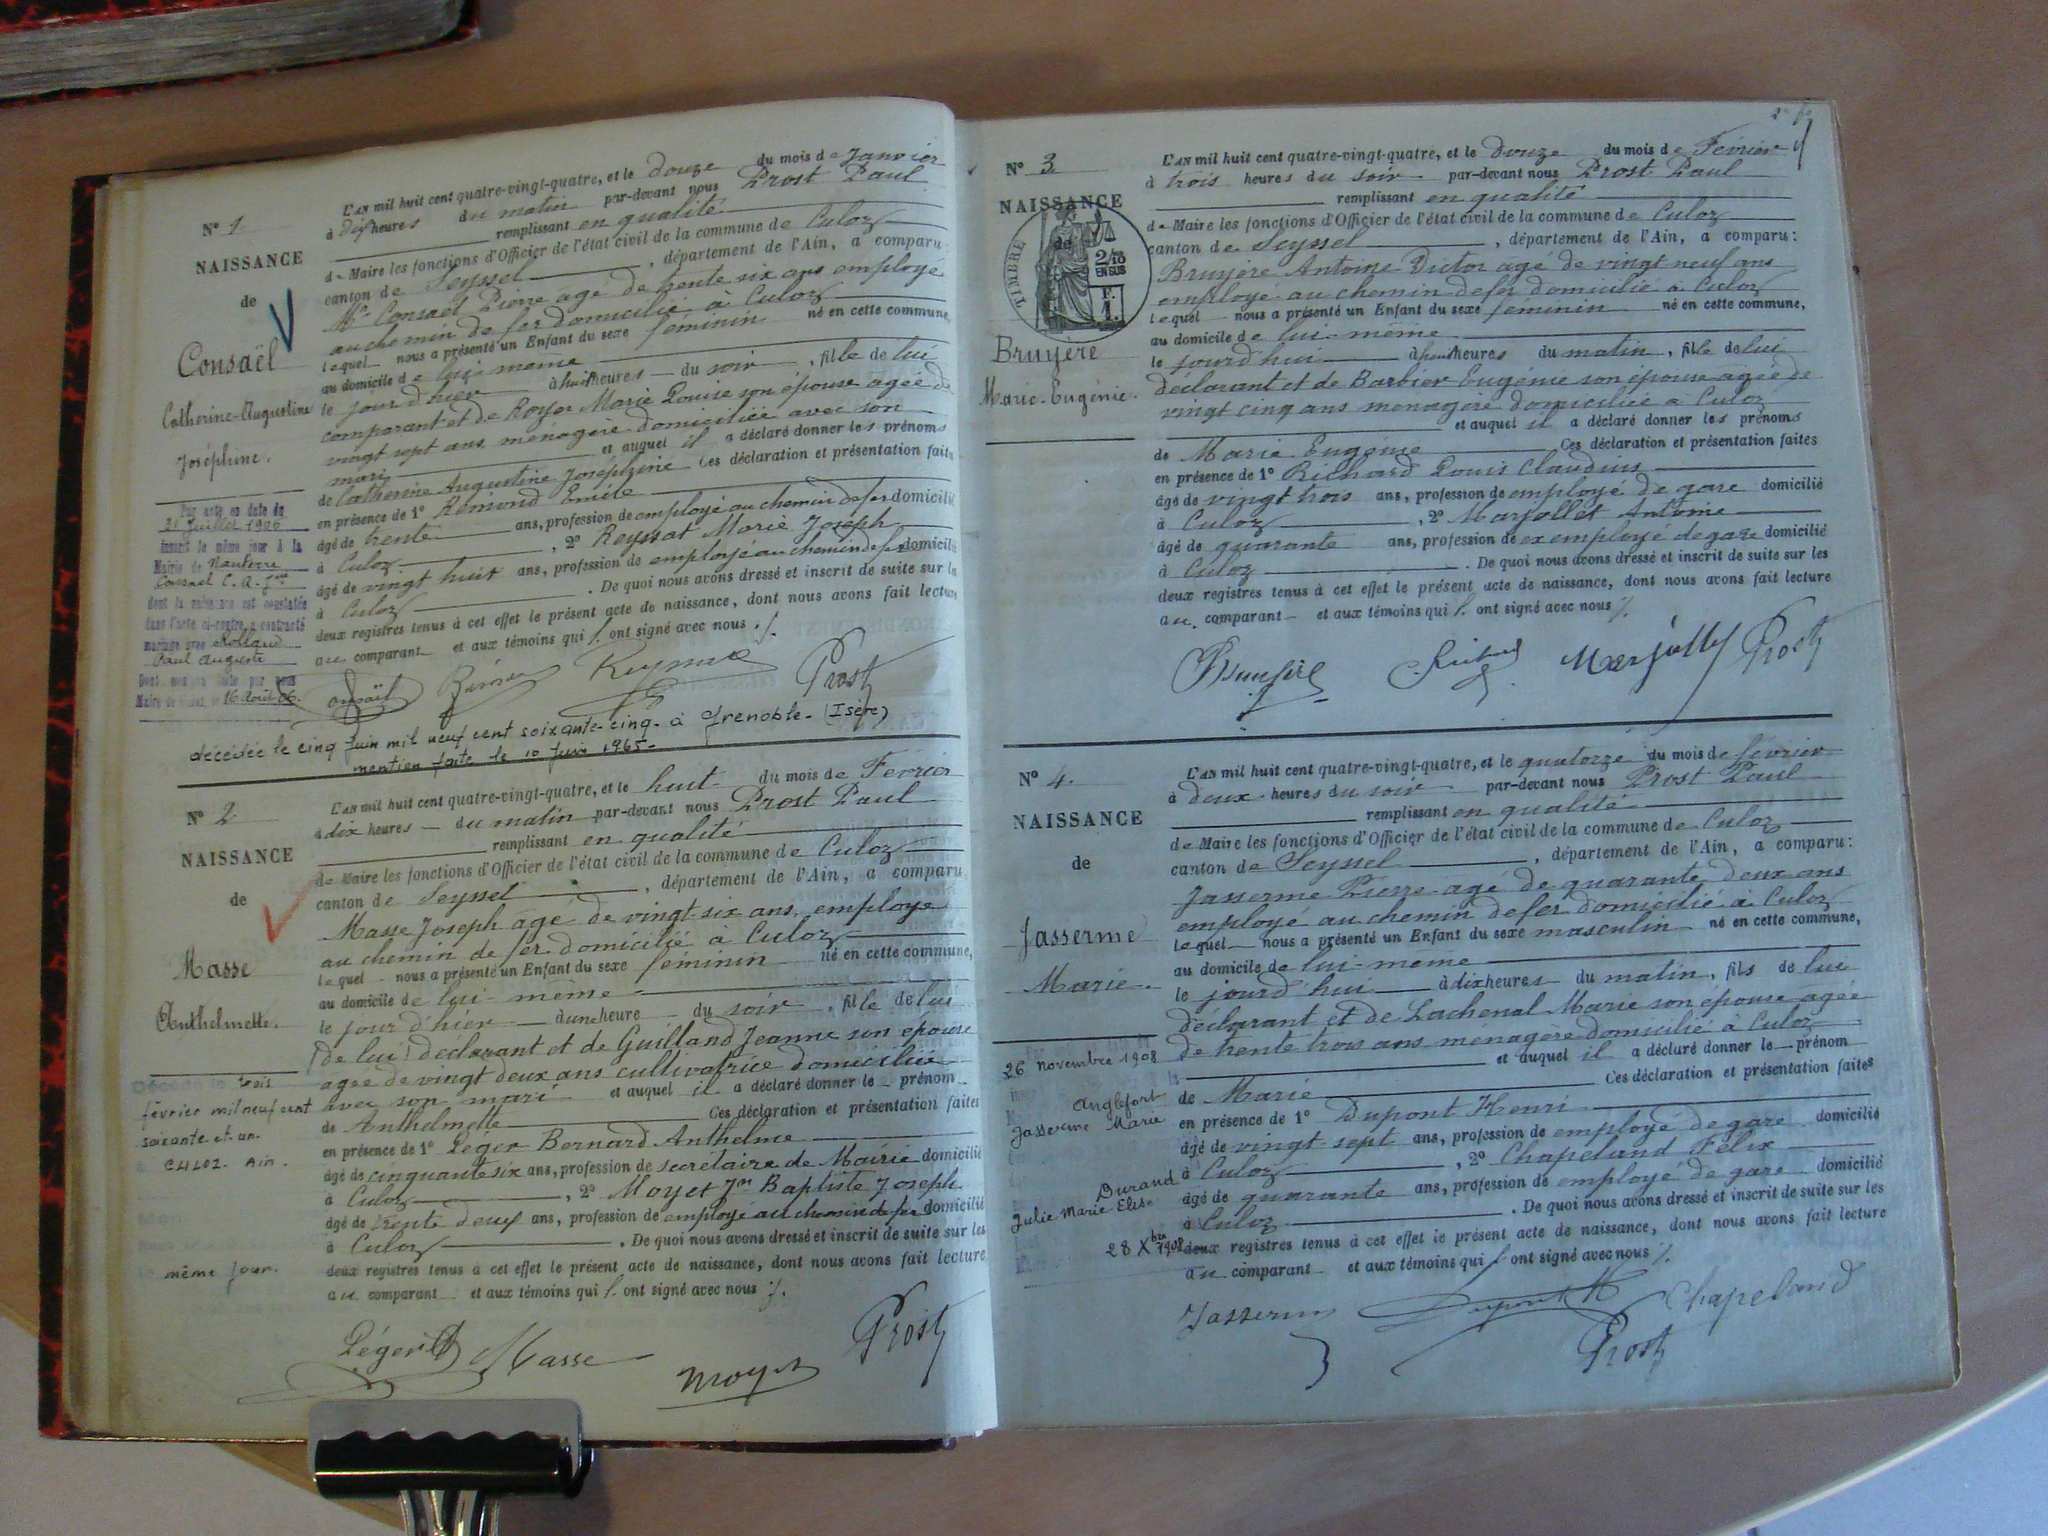 N° 1
NAISSANCE
de
Consaël
Catherine-Augustine
Joséphine.
Par acte en date du
21 Juillet 1906
inscrit le même jour à la
Mairie de Nanterre
Consael C. A. Jne
dont la naissance est constatée
dans l'acte ci-contre, a contracté
mariage avec Rolland
Paul Auguste
16 Août 06.
L'AN mil huit cent quatre-vingt-quatre, et le douze du mois de Janvier
à dix heures du matin par-devant nous Prost Paul
remplissant en qualité
de Maire les fonctions d'Officier de l'état civil de la commune de Culoz
canton de Seyssel, département de l'Ain, a comparu:
Mr Consael Pierre agé de trente six ans employé
au chemin de fer domicilié à Culoz
lequel nous a présenté un Enfant du sexe féminin né en cette commune,
au domicile de lui même
le jour d'hier à huit heures du soir, fille de lui
comparant et de Royer Marie Louise son épouse agée de
vingt sept ans ménagère domiciliée avec son
mari et auquel il a déclaré donner les prénoms
de Catherine Augustine Joséphine Ces déclaration et présentation faites
en présence de 1° Rémond Emile
âgé de trente ans, profession de employé au chemin de fer domicilié
à Culoz, 2° Reyssat Marie Joseph
âgé de vingt huit ans, profession de employé au chemin de fer domicilié
à Culoz. De quoi nous avons dressé et inscrit de suite sur les
deux registres tenus à cet effet le présent acte de naissance, dont nous avons fait lecture
au comparant et aux témoins qui ont signé avec nous ./.
Consaël Prost
décédée le cinq Juin mil neuf cent soixante-cinq. à Grenoble. (Isère)
mention faite le 10 Juin 1965-
N° 2
NAISSANCE
de
Masse
Anthelmette.
Décédé le trois
février mil neuf cent
soixante et un.
CULOZ. Ain.
même jour.
L'AN mil huit cent quatre-vingt-quatre, et le huit du mois de Fevrier
à dix heures du matin par-devant nous Prost Paul
remplissant en qualité
de Maire les fonctions d'Officier de l'état civil de la commune de Culoz
canton de Seyssel, département de l'Ain, a comparu
Masse Joseph agé de vingt-six ans, employé
au chemin de fer domicilié à Culoz
lequel nous a présenté un Enfant du sexe féminin né en cette commune,
au domicile de lui-même
le jour d'hier à une heure du soir, fille de lui
(de lui) déclarant et de Guilland Jeanne son épouse
agée de vingt deux ans cultivatrice domiciliée
avec son mari et auquel il a déclaré donner le prénom
de Anthelmette Ces déclaration et présentation faites
en présence de 1° Léger Bernard Anthelme
âgé de cinquante six ans, profession de secrétaire de Mairie domicilié
à Culoz, 2° Moyet Jn Baptiste Joseph
âgé de trente deux ans, profession de employé au chemin de fer domicilié
à Culoz. De quoi nous avons dressé et inscrit de suite sur les
deux registres tenus à cet effet le présent acte de naissance, dont nous avons fait lecture
au comparant et aux témoins qui ont signé avec nous ./.
Léger Masse Moyet Prost
N° 3
NAISSANCE
de
TIMBRE
2/10
EN SUS
F.
1.
Bruyère
Marie-Eugénie.
L'AN mil huit cent quatre-vingt-quatre, et le douze du mois de Février
à trois heures du soir par-devant nous Prost Paul
remplissant en qualité
de Maire les fonctions d'Officier de l'état civil de la commune de Culoz
canton de Seyssel, département de l'Ain, a comparu:
Bruyère Antoine Victor agé de vingt neuf ans
employé au chemin de fer domicilié à Culoz
lequel nous a présenté un Enfant du sexe féminin né en cette commune,
au domicile de lui-même
le jourd'hui à heures du matin, fille de lui
déclarant et de Barbier Eugénie son épouse agée de
vingt cinq ans ménagère domiciliée à Culoz
et auquel il a déclaré donner les prénoms
de Marie Eugénie Ces déclaration et présentation faites
en présence de 1° Richard Louis Claudius
âgé de vingt trois ans, profession de employé de gare domicilié
à Culoz, 2° Marjollet Antoine
âgé de quarante ans, profession de ex employé de gare domicilié
à Culoz. De quoi nous avons dressé et inscrit de suite sur les
deux registres tenus à cet effet le présent acte de naissance, dont nous avons fait lecture
au comparant et aux témoins qui ont signé avec nous ./.
Bruyère Marjollet Prost
N° 4.
NAISSANCE
de
Jasserme
Marie.
26 novembre 1908
Anglefort
Jasserme Marie
Durand
Julie Marie Elise
28 Xbre 1908
L'AN mil huit cent quatre-vingt-quatre, et le quatorze du mois de février
à deux heures du soir par-devant nous Prost Paul
remplissant en qualité
de Maire les fonctions d'Officier de l'état civil de la commune de Culoz
canton de Seyssel, département de l'Ain, a comparu:
Jasserme Pierre agé de quarante deux ans
employé au chemin de fer domicilié à Culoz
lequel nous a présenté un Enfant du sexe masculin né en cette commune,
au domicile de lui-même
le jourd'hui à dix heures du matin, fils de lui
déclarant et de Lachenal Marie son épouse agée
de trente trois ans menagère domicilié à Culoz
et auquel il a déclaré donner le prénom
de Marie Ces déclaration et présentation faites
en présence de 1° Dupont Henri
âgé de vingt-sept ans, profession de employé de gare domicilié
à Culoz, 2° Chapeland Félix
âgé de quarante ans, profession de employé de gare domicilié
à Culoz. De quoi nous avons dressé et inscrit de suite sur les
deux registres tenus à cet effet le présent acte de naissance, dont nous avons fait lecture
au comparant et aux témoins qui ont signé avec nous ./.
Jasserme Dupont H Chapeland
Prost